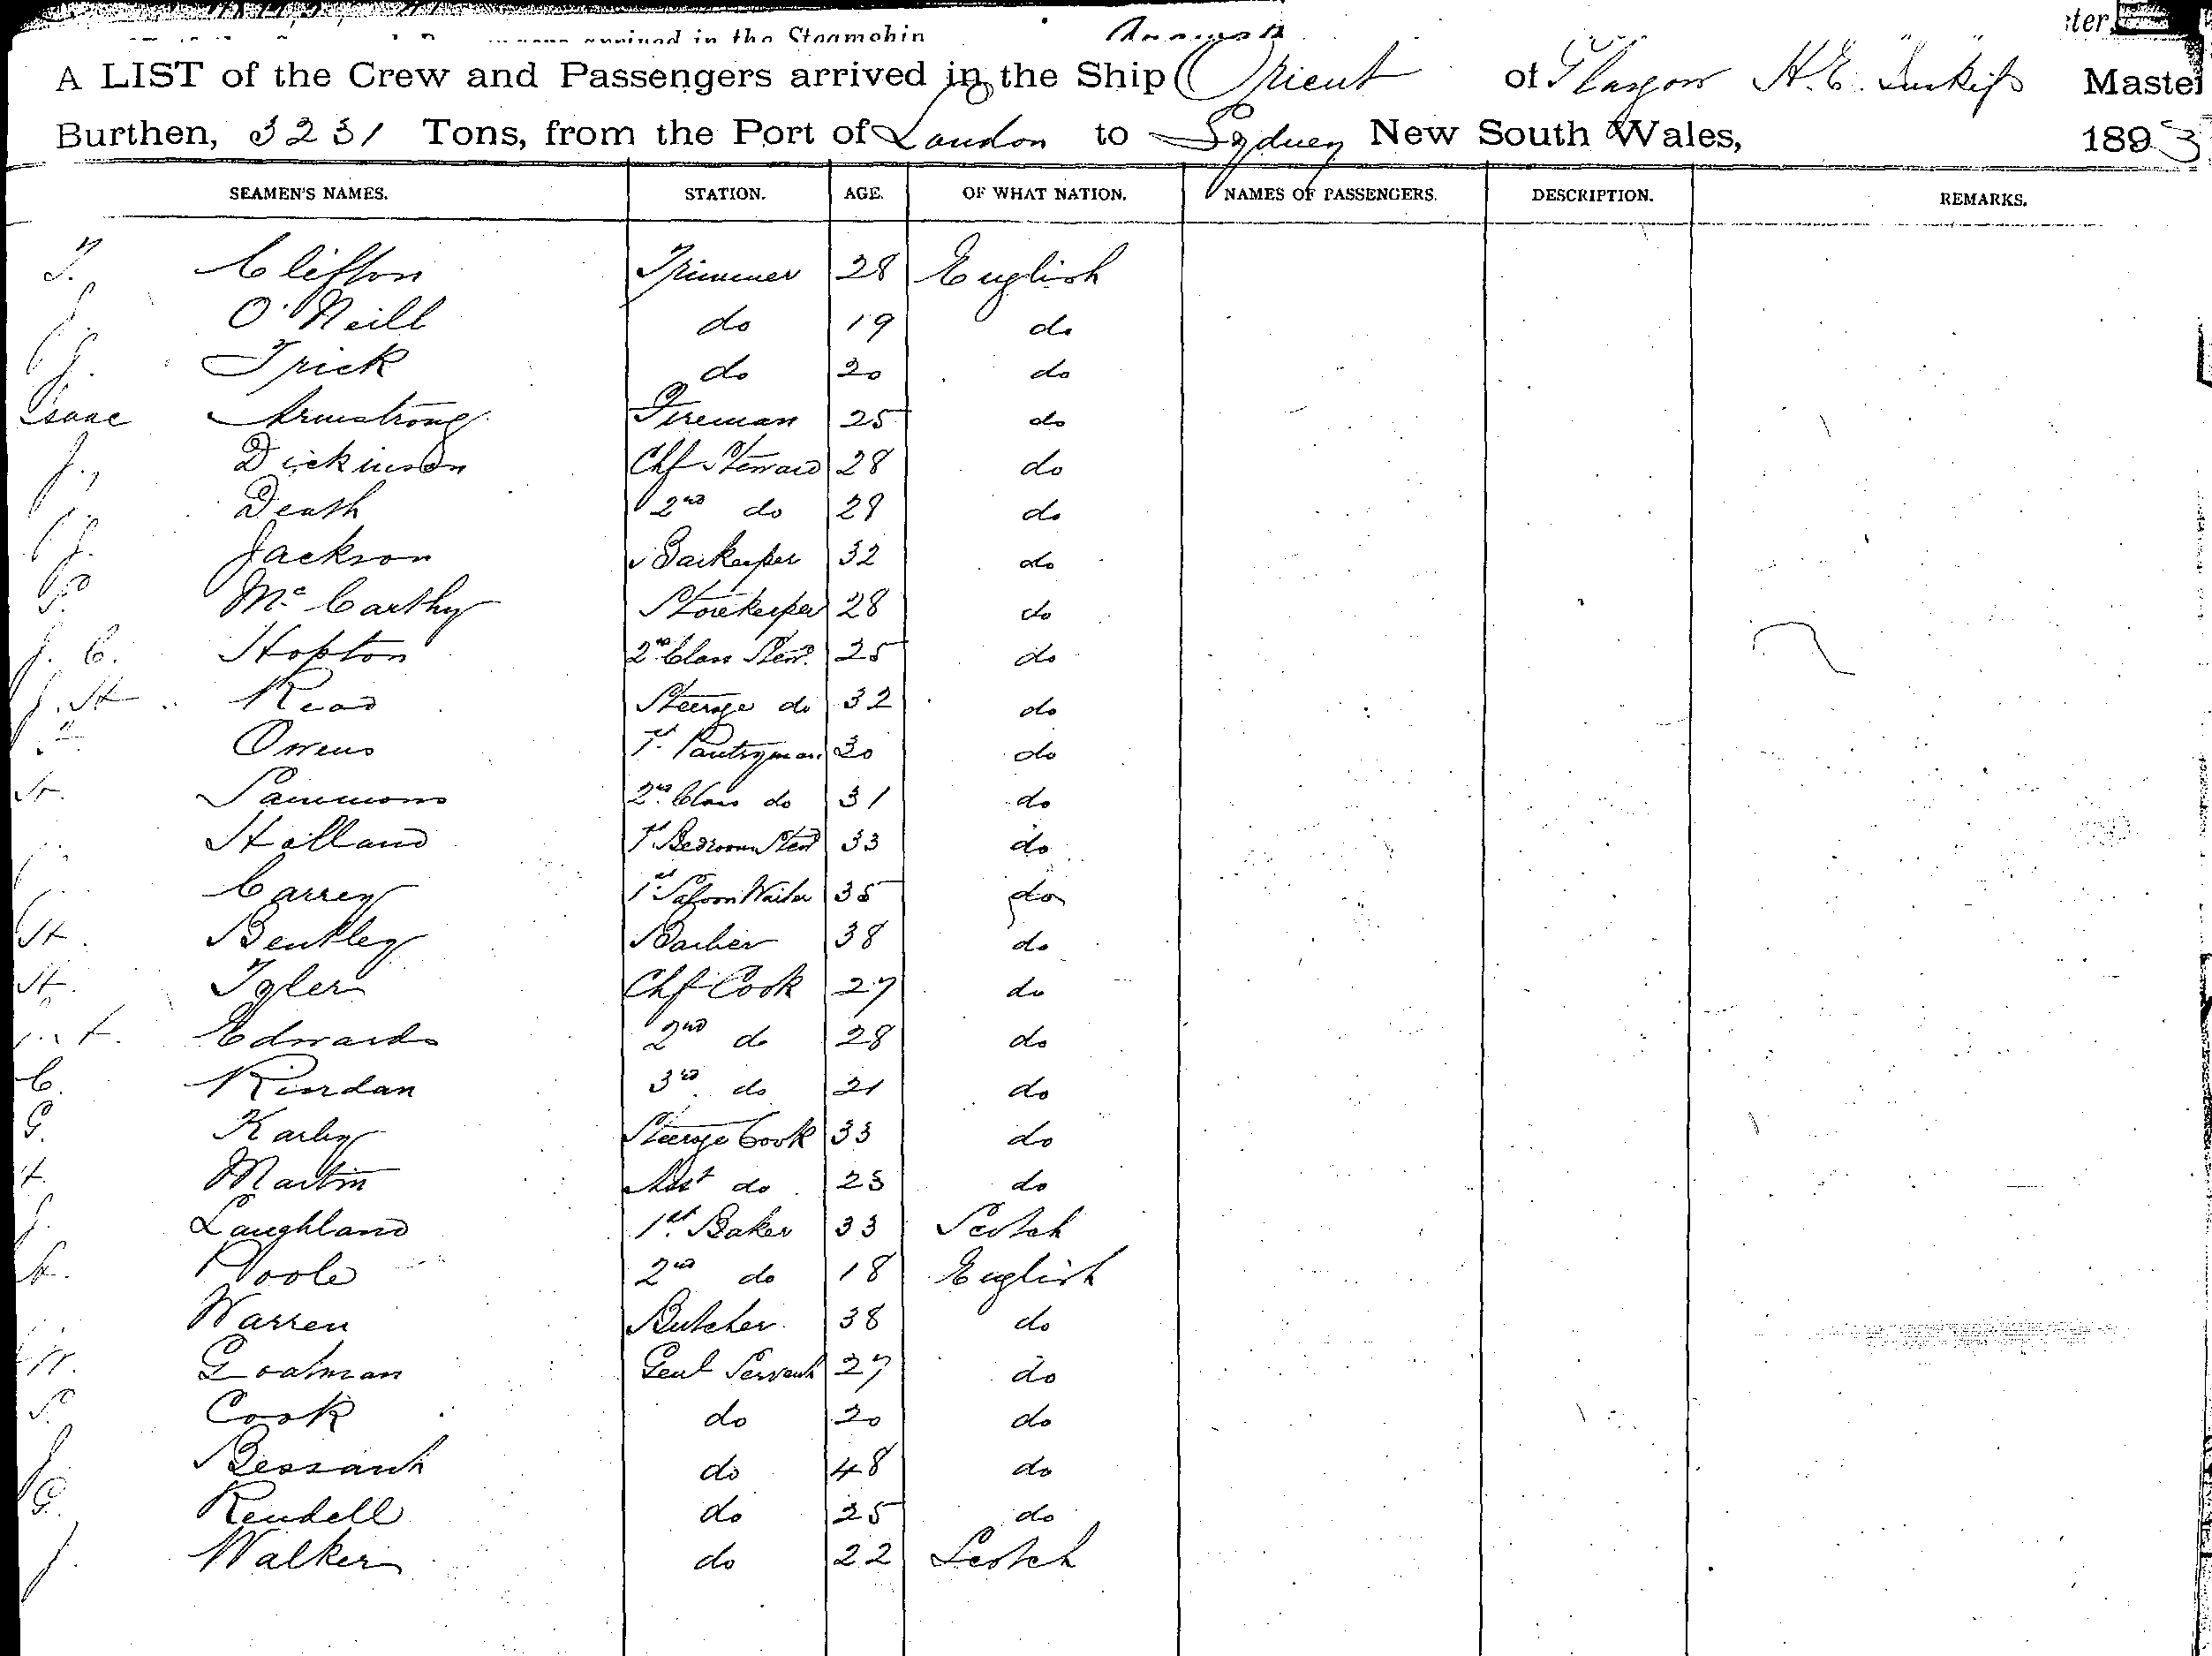 arrived in the Steamship
A LIST of the Crew and Passengers arrived in the Ship Orient of Glasgow H.E. Inskip Master
Burthen, 3231 Tons, from the Port of London to Sydney New South Wales, 1893
SEAMEN'S NAMES. STATION. AGE. OF WHAT NATION. NAMES OF PASSENGERS. DESCRIPTION. REMARKS.
T. Clifton Trimmer 28 English
J. O'Neill do 19 do
J. Trick do 20 do
Isaac Armstrong Fireman 25 do
J. Dickinson Chf Steward 28 do
Death 2nd do 29 do
J. Jackson Barkeeper 32 do
P. McCarthy Storekeeper 28 do
J. C. Hopton 2nd Class Stewd. 25 do
J. H Read Steerage do 32 do
Owens 1st Pantryman 30 do
Sammons 2nd Class do 31 do
Holland 1st Bedroom Stewd 33 do
Carrey 1st Saloon Waiter 35 do
H. Bentley Barber 38 do
H. Tyler Chf Cook 27 do
Edwards 2nd do 28 do
C. Riordan 3rd do 21 do
G. Karby Steerage Cook 33 do
Martin Asst do 23 do
J. Laughland 1st. Baker 33 Scotch
H. Poole 2nd do 18 English
Warren Butcher 38 do
W. Goatman Genl Servant 27 do
P. Cook do 20 do
J. Bessant do 48 do
G. Rendell do 25 do
J. Walker do 22 Scotch